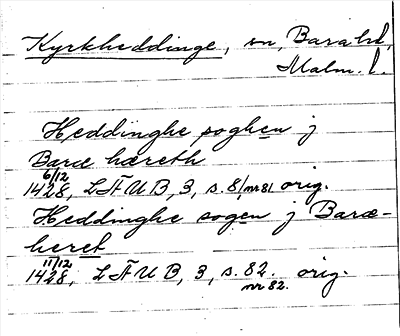 Kyrkheddinge, sn, Bara hd,
Malm. l.
Heddinghe soghen j
Baræ hæreth
6/12
1428, LÄUB, 3, s. 81, nr 81 orig.
Heddinghe sogen j Baræ-
heret
11/12
1428, LÄUB, 3, s. 82. orig.
nr 82.